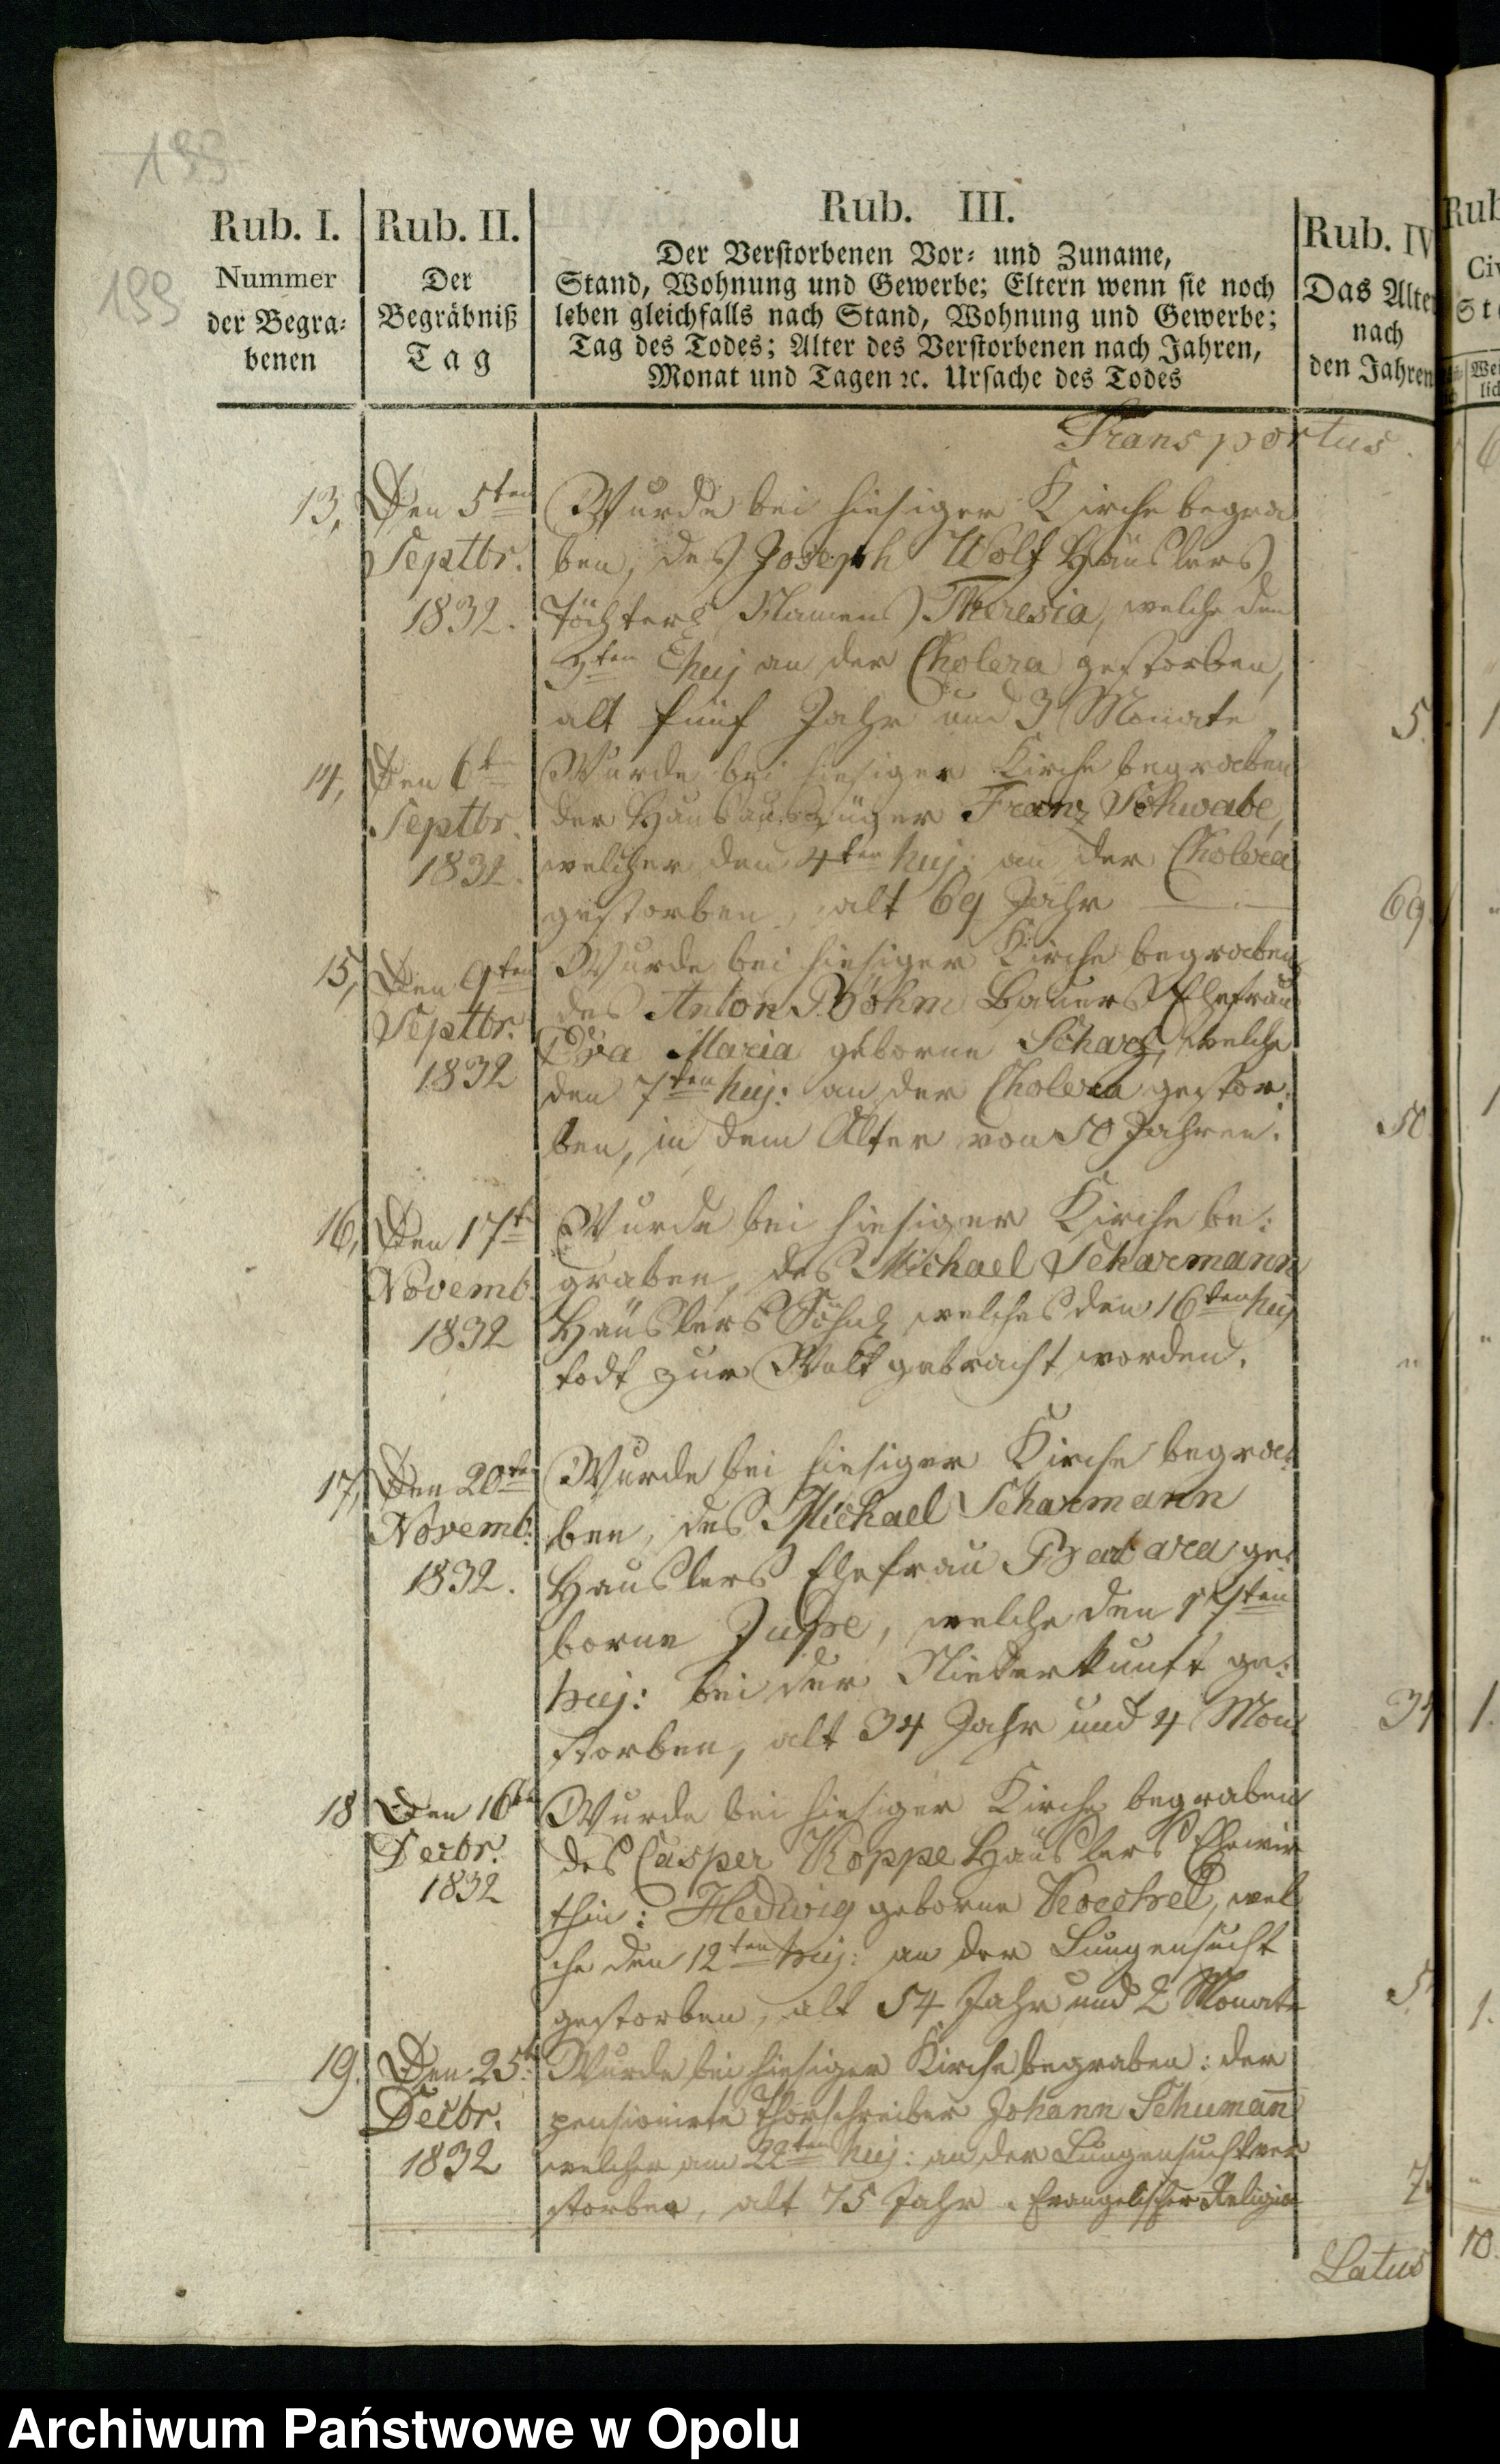 199
199
Rub. I.
Nummer
der Begra-
benen
Rub. II.
Der
Begräbniß
Tag
Rub. III.
Der Verstorbenen Vor- und Zuname,
Stand, Wohnung und Gewerbe; Eltern wenn sie noch
leben gleichfalls nach Stand, Wohnung und Gewerbe;
Tag des Todes; Alter des Verstorbenen nach Jahren,
Monat und Tagen ꝛc. Ursache des Todes
Rub. IV
Das Alte
nach
den Jahren
Rub
Civ
St
Wei
lic
Transportus.
13, Den 5ten
Septbr.
1832.
Wurde bei hiesiger Kirche begra
ben, des Joseph Wolf Häuslers
Namens Theresia, welche den
3ten huj an der Cholera gestorben,
alt fünf Jahr und 3 Monate
5. 1
14, Den 6ten
Septbr.
1832.
Wurde bei hiesiger Kirche begraben
der Hausauszüger Franz Schwabe,
welcher den 4ten huj: an der Cholera
gestorben, alt 69 Jahr
69.
15, Den 9ten
Septbr.
1832
Wurde bei hiesiger Kirche begraben
des Anton Böhm Bauers Ehefrau
Eva Maria geborne welche
den 7ten huj: an der Cholera gestor:
ben, in dem Alter von 50 Jahren.
50. 1
16, Den 17t
Novemb.
1832
Wurde bei hiesiger Kirche be:
graben, des Michael Scharmann
Häuslers welches den 16ten huj
todt zur Welt gebracht worden.
" "
17, Den 20ten
Novemb:
1832.
Wurde bei hiesiger Kirche begra:
ben, des Michael Scharmann
Hauslers Ehefrau Barbara ge:
borne welche den 17ten
huj: bei der Niederkunft ge:
storben, alt 34 Jahr und 4 Mon:
34 1.
18 Den 16ten
Decbr.
1832
Wurde bei hiesiger Kirche begraben
des Casper Koppe Häuslers Ehewir
thin: Hedwig geborne wel
che den 12ten huj: an der Lungensucht
gestorben, alt 54 Jahr und 2 Monate
5 1.
19. Den 25t
Decbr.
1832
Wurde bei hiesiger Kirche begraben: der
pensionirte Thorschreiber Johann Schumañ
welcher am 22ten huj: an der Lungensucht ver
storben, alt 75 Jahr. Evangelischer Religion
7 "
Latus 10.
Archiwum Państwowe w Opolu